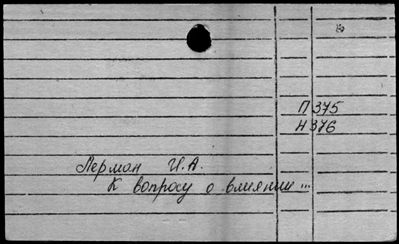 П 375
Н 376
Лерман И.А.
К вопросу о влиянии...